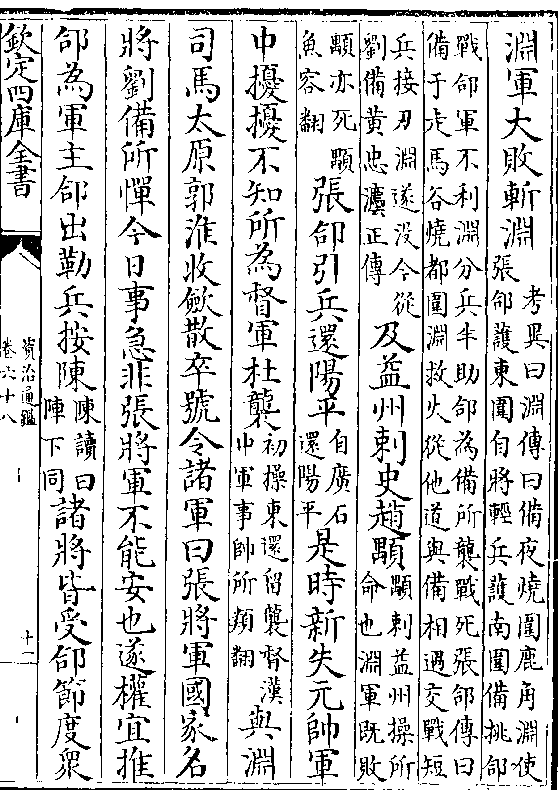 淵軍大敗斬淵
考異曰淵傳曰備夜燒圍鹿角淵使
張郃護東圍自將輕兵護南圍備挑郃
戰郃軍不利淵分兵半助郃為備所襲戰死張郃傳曰
備于走馬谷燒都圍淵救火從他道與備相遇交戰短
兵接刃淵遂没今從
劉備黄忠灋正傳
及益州刺史趙顒
顒刺益州操所
命也淵軍既敗
顒亦死顒
魚容翻
張郃引兵還陽平
自廣石
還陽平
是時新失元帥軍
中擾擾不知所為督軍杜襲
初操東還留襲督漢
中軍事帥所類翻
與淵
司馬太原郭淮收斂散卒號令諸軍曰張將軍國家名
將劉備所憚今日事急非張將軍不能安也遂權宜推
郃為軍主郃出勒兵按陳
陳讀曰
陣下同
諸將皆受郃節度衆
欽定四庫全書
資治通鑑
卷六十八
十二